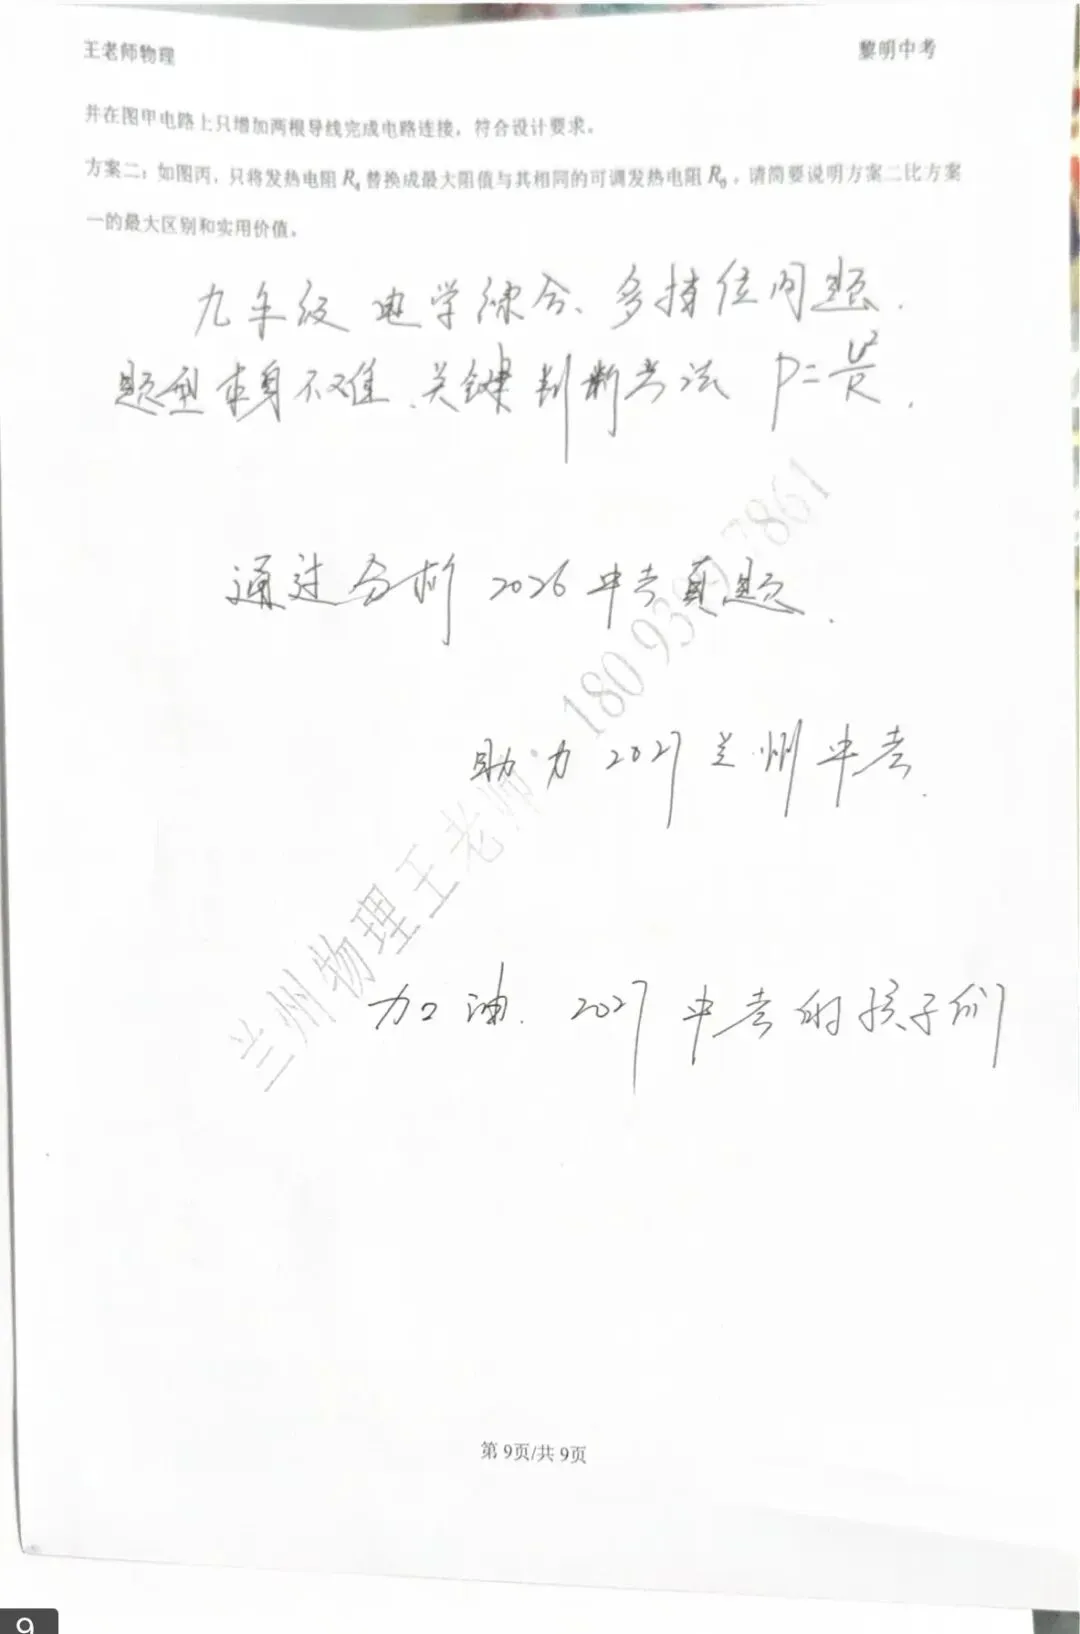 王老师物理
黎明中考
并在图甲电路上只增加两根导线完成电路连接，符合设计要求。
方案二：如图丙，只将发热电阻R₄替换成最大阻值与其相同的可调发热电阻R₀，请简要说明方案二比方案
一的最大区别和实用价值。
九年级 电学综合、多挡位问题.
题型本身不难.关键判断方法 P=U²/R.
通过分析 2026中考真题.
助力 2027 兰州中考.
加油. 2027 中考的孩子们
兰州物理王老师：180938 7861
第9页/共9页
9